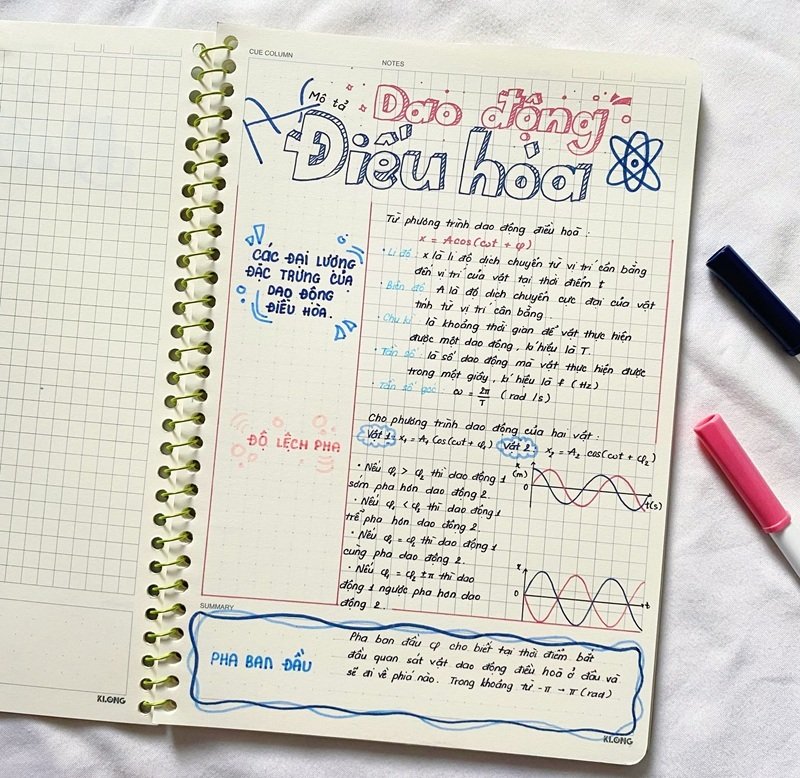 CUE COLUMN
NOTES
Mô tả
Dao động
Điều hòa
CÁC ĐẠI LƯỢNG
ĐẶC TRƯNG CỦA
DAO ĐỘNG
ĐIỀU HÒA.
Từ phương trình dao động điều hoà :
x = Acos(ωt + φ)
• Li độ : x là li độ dịch chuyển từ vị trí cân bằng
đến vị trí của vật tại thời điểm t
• Biên độ : A là độ dịch chuyển cực đại của vật
tính từ vị trí cân bằng .
• Chu kì : là khoảng thời gian để vật thực hiện
được một dao động , kí hiệu là T.
• Tần số : là số dao động mà vật thực hiện được
trong một giây , kí hiệu là f (Hz)
• Tần số góc : ω = 2π/T (rad /s)
ĐỘ LỆCH PHA
Cho phương trình dao động của hai vật :
Vật 1 : x₁ = A₁ cos(ωt + φ₁) Vật 2 : x₂ = A₂ .cos(ωt + φ₂)
• Nếu φ₁ > φ₂ thì dao động 1
sớm pha hơn dao động 2.
• Nếu φ₁ < φ₂ thì dao động 1
trễ pha hơn dao động 2.
• Nếu φ₁ = φ₂ thì dao động 1
cùng pha dao động 2.
• Nếu φ₁ = φ₂ ±π thì dao
động 1 ngược pha hơn dao
động 2.
x
(m)
0
t(s)
x
0
t
SUMMARY
PHA BAN ĐẦU
Pha ban đầu φ cho biết tại thời điểm bắt
đầu quan sát vật dao động điều hoà ở đâu và
sẽ đi về phía nào . Trong khoảng từ -π → π (rad)
KLONG
KLONG